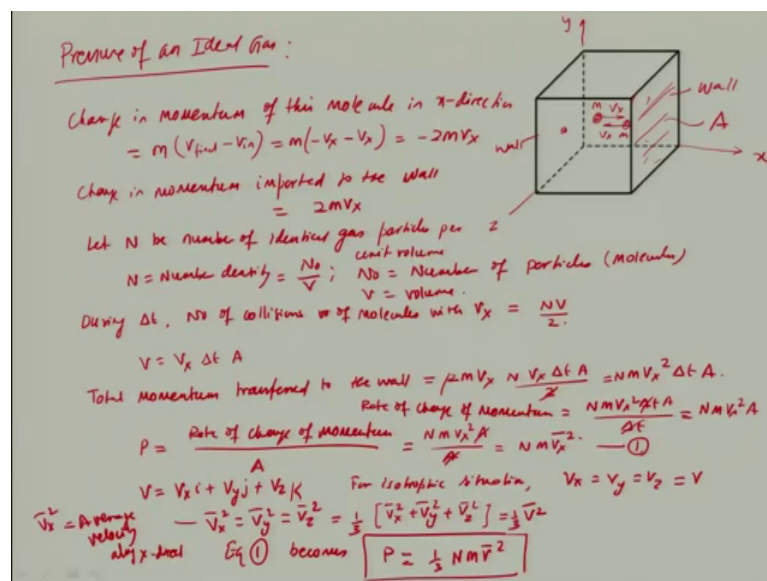 Pressure of an Ideal Gas:
y
Wall
A
x
m Vx
Vx m
Wall
z
Change in momentum of this molecule in x-direction
= m (Vfinal - Vin) = m(-Vx - Vx) = -2mVx
Change in momentum imparted to the wall
= 2mVx
Let N be number of identical gas particles per
unit volume
N = Number density = No/V ; No = Number of particles (molecules)
V = volume.
During Δt, No of collisions of molecules with Vx = NV/2.
V = Vx Δt A
Total momentum transferred to the wall = 2mVx N Vx Δt A/2 = NmVx² Δt A.
Rate of change of momentum = NmVx² Δt A/Δt = NmVx² A
P = Rate of change of momentum/A = NmVx² A/A = Nm V̄x². — ①
V = Vx i + Vy j + Vz K For isotropic situation, Vx = Vy = Vz = V
V̄x² = Average velocity along x-direct — V̄x² = V̄y² = V̄z² = 1/3 [V̄x² + V̄y² + V̄z²] = 1/3 V̄²
Eq ① becomes P = 1/3 Nm V̄²